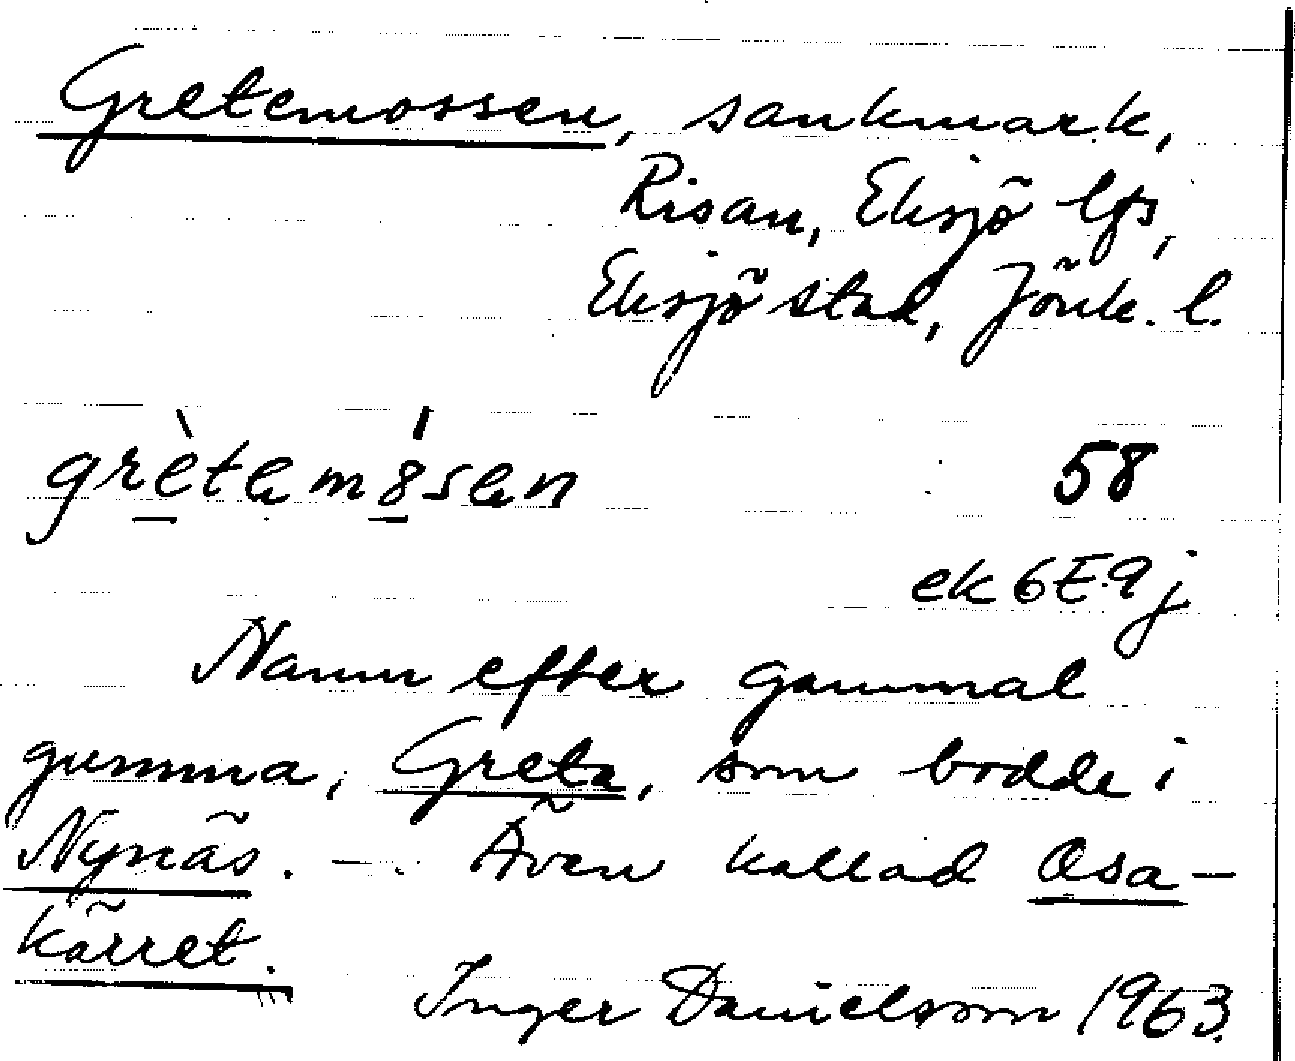 Gretemossen, sankmark,
Risan, Eksjö lfs,
Eksjö stad, Jönk. l.
grètem8sen 58
ek6E9j
Namn efter gammal
gumma, Greta, som bodde i
Nynäs. - Även kallad Osa-
kärret.
Inger Danielsson 1963.